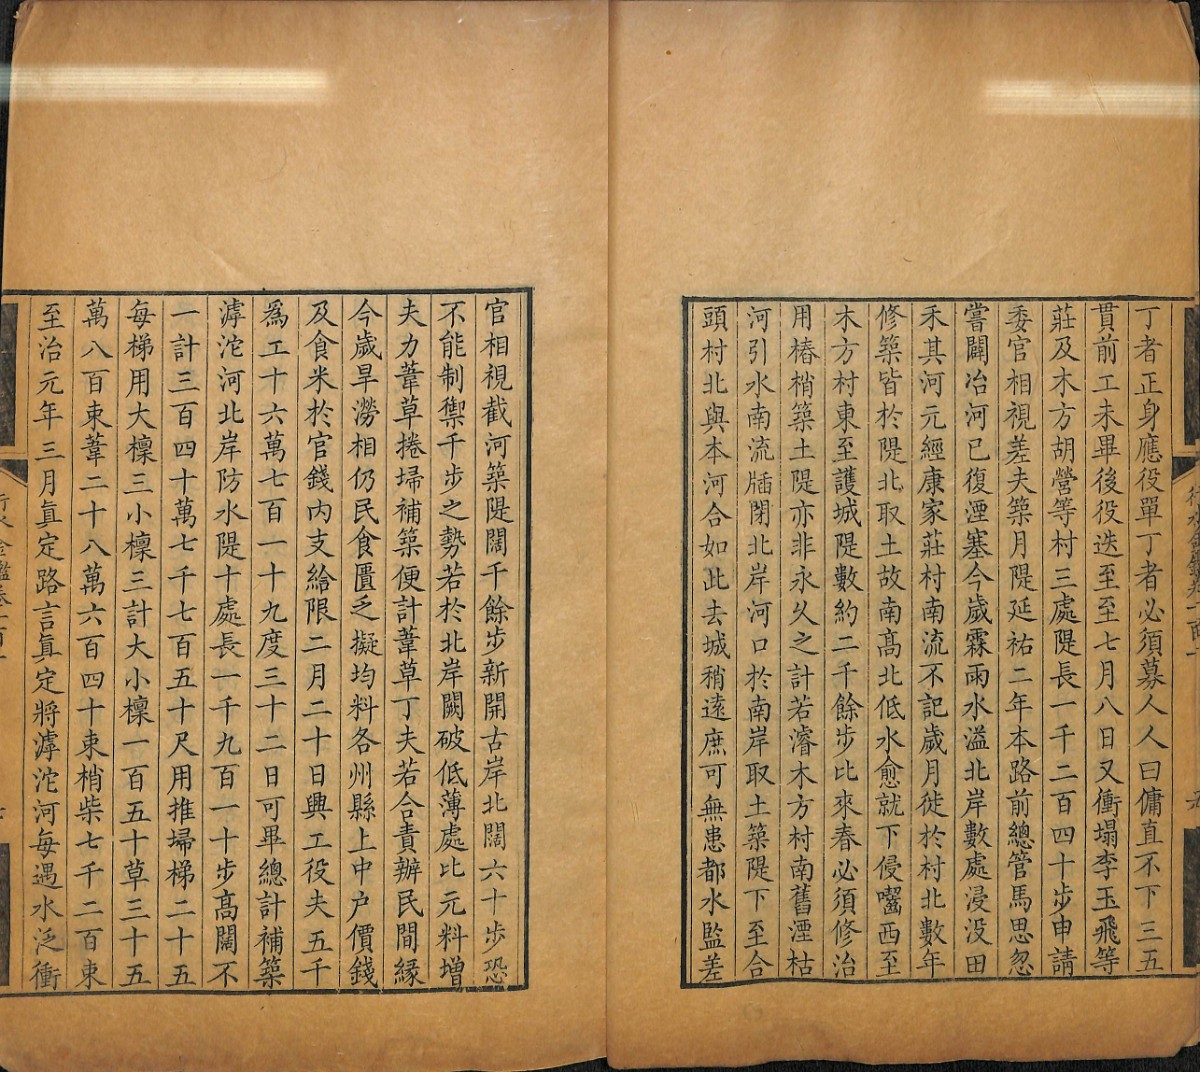 丁者正身應役單丁者必須募人人曰傭直不下三五
貫前工未畢後役迭至至七月八日又衝塌李玉飛等
莊及木方胡營等村三處隄長一千二百四十步申請
委官相視差夫築月隄延祐二年本路前總管馬思忽
嘗闢冶河已復湮塞今歲霖雨水溢北岸數處浸没田
禾其河元經康家莊村南流不記歲月徙於村北數年
修築皆於隄北取土故南高北低水愈就下侵嚙西至
木方村東至護城隄數約二千餘步比來春必須修治
用樁梢築土隄亦非永久之計若濬木方村南舊湮枯
河引水南流牐閉北岸河口於南岸取土築隄下至合
頭村北與本河合如此去城稍遠庶可無患都水監差
官相視截河築隄闊千餘步新開古岸北闊六十步恐
不能制禦千步之勢若於北岸闕破低薄處比元料增
夫力葦草捲埽補築便計葦草丁夫若合責辦民間緣
今歲旱澇相仍民食匱乏擬均料各州縣上中户價錢
及食米於官錢内支給限二月二十日興工役夫五千
爲工十六萬七百一十九度三十二日可畢總計補築
滹沱河北岸防水隄十處長一千九百一十步高闊不
一計三百四十萬七千七百五十尺用推埽梯二十五
每梯用大檁三小檁三計大小檁一百五十草三十五
萬八百束葦二十八萬六百四十束梢柴七千二百束
至治元年三月眞定路言眞定將滹沱河每遇水泛衝